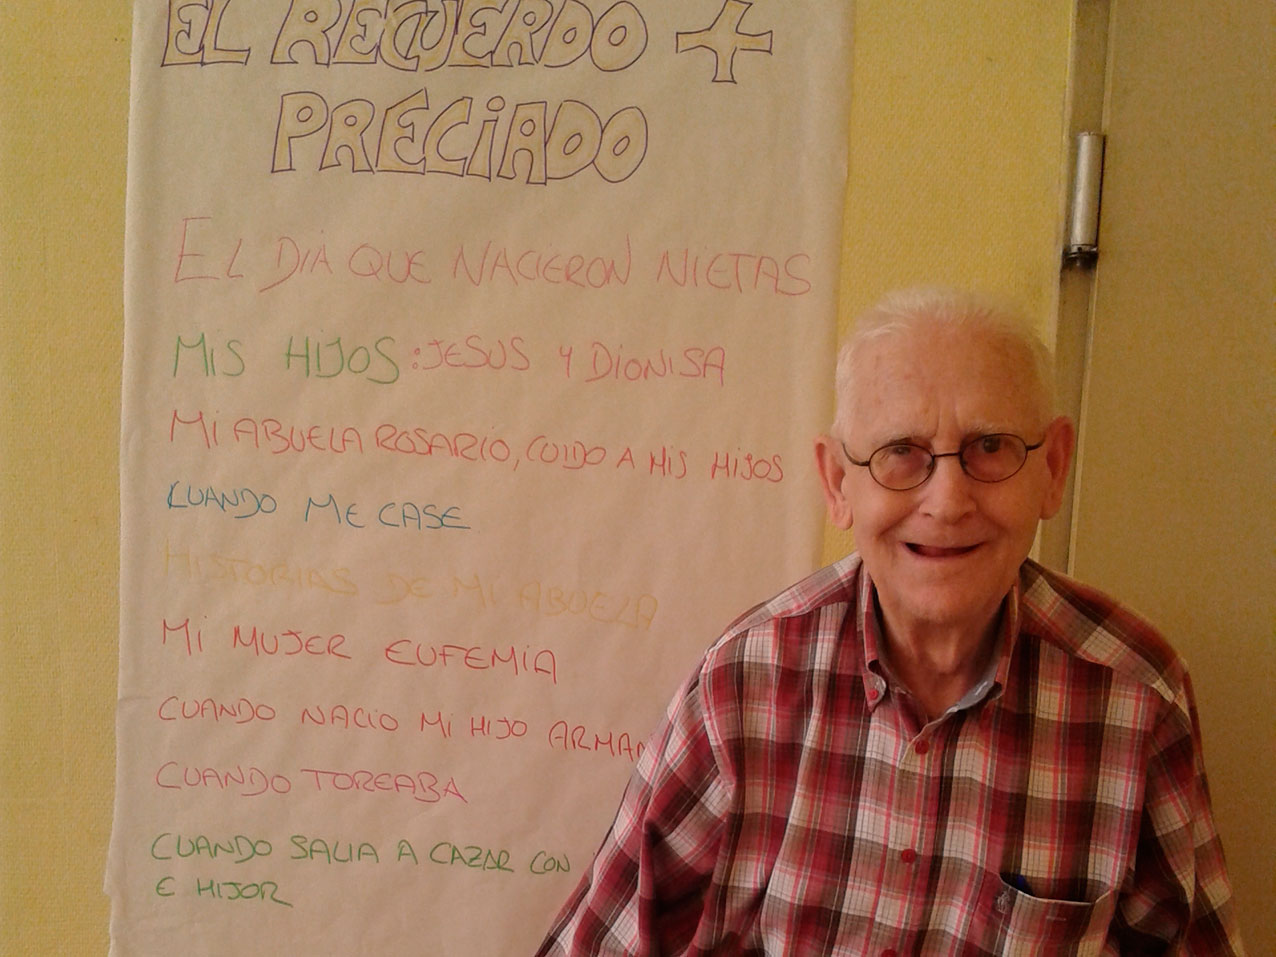 EL RECUERDO +
PRECIADO
EL DIA QUE NACIERON NIETAS
MIS HIJOS: JESUS Y DIONISA
MI ABUELA ROSARIO, CUIDO A MIS HIJOS
CUANDO ME CASE
HISTORIAS DE MI ABUELA
MI MUJER EUFEMIA
CUANDO NACIO MI HIJO ARMAN
CUANDO TOREABA
CUANDO SALIA A CAZAR CON
E HIJOR